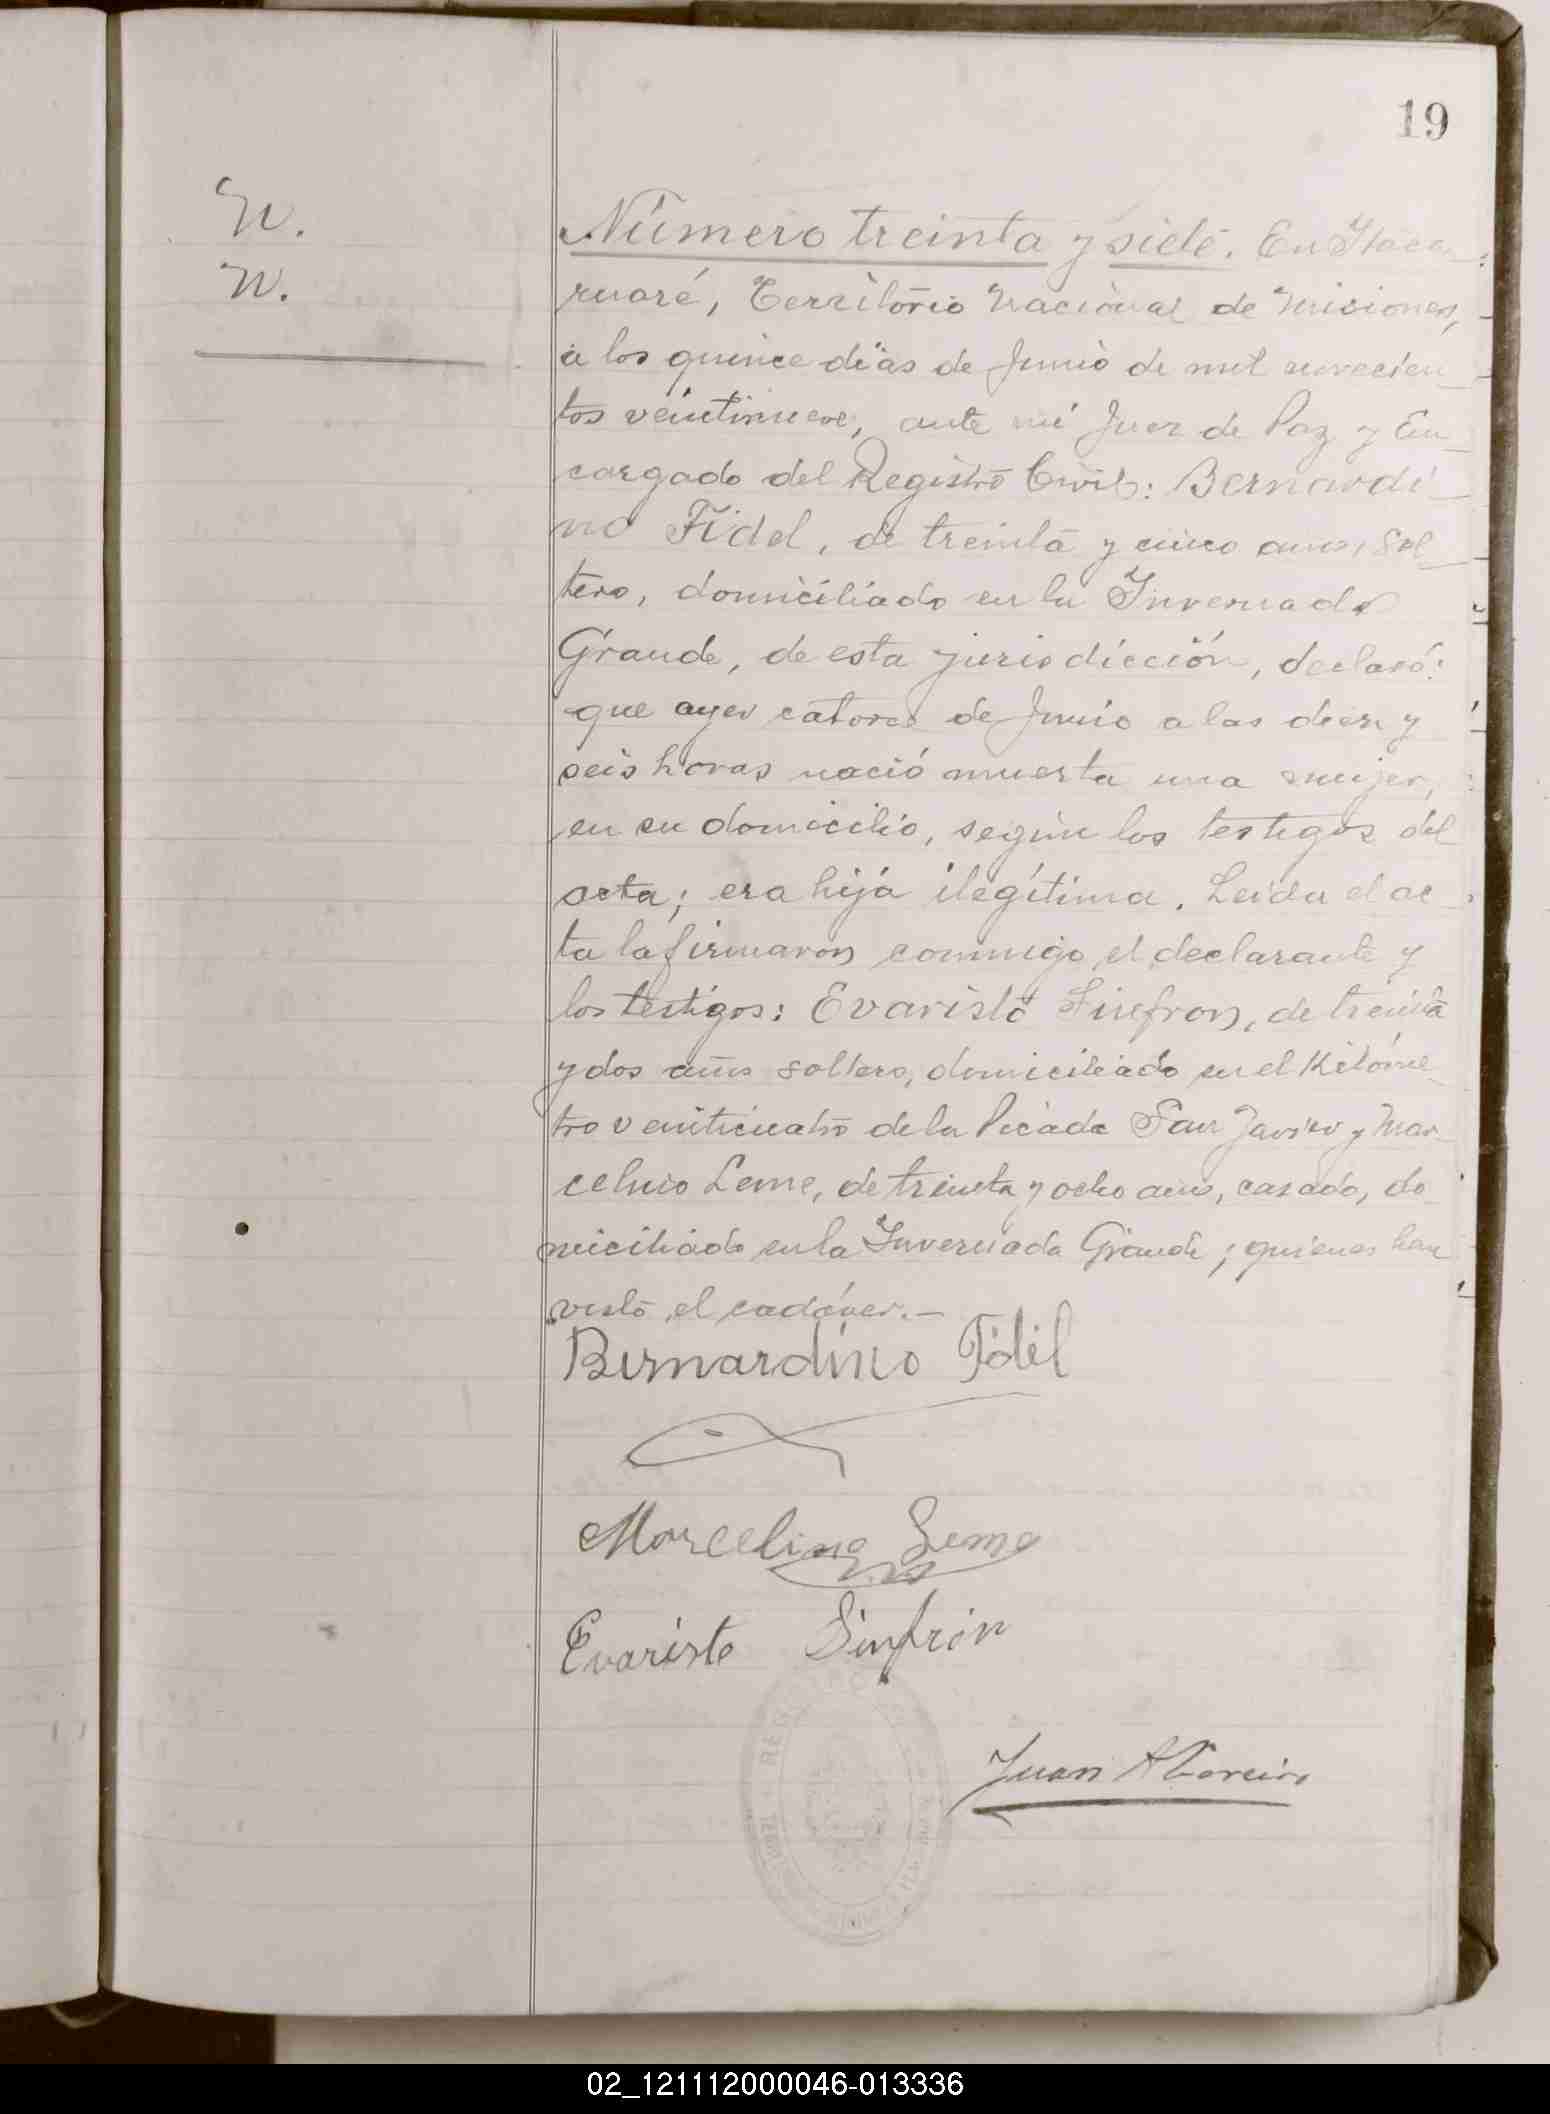 19
N.
N.
Número treinta y siete. En Itaca-
ruaré, Territorio Nacional de Misiones,
a los quince días de Junio de mil novecien-
tos veintinueve, ante mí Juez de Paz y En-
cargado del Registro Civil: Bernardi-
no Fidel, de treinta y cinco años, sol-
tero, domiciliado en la Invernada
Grande, de esta jurisdicción, declaró:
que ayer catorce de Junio a las diez y
seis horas nació muerta una mujer,
en su domicilio, según los testigos del
acta; era hija ilegítima. Leída el ac-
ta la firmaron conmigo el declarante y
los testigos: Evaristo Sinfron, de treinta
y dos años soltero, domiciliado en el Kilóme-
tro veinticuatro de la Picada San Javier y Mar-
celino Leme, de treinta y ocho años, casado, do-
miciliado en la Invernada Grande; quienes han
visto el cadáver.-
Bernardino Fidel
Marcelino Leme
Evaristo Sinfrón
Juan A
02_121112000046-013336